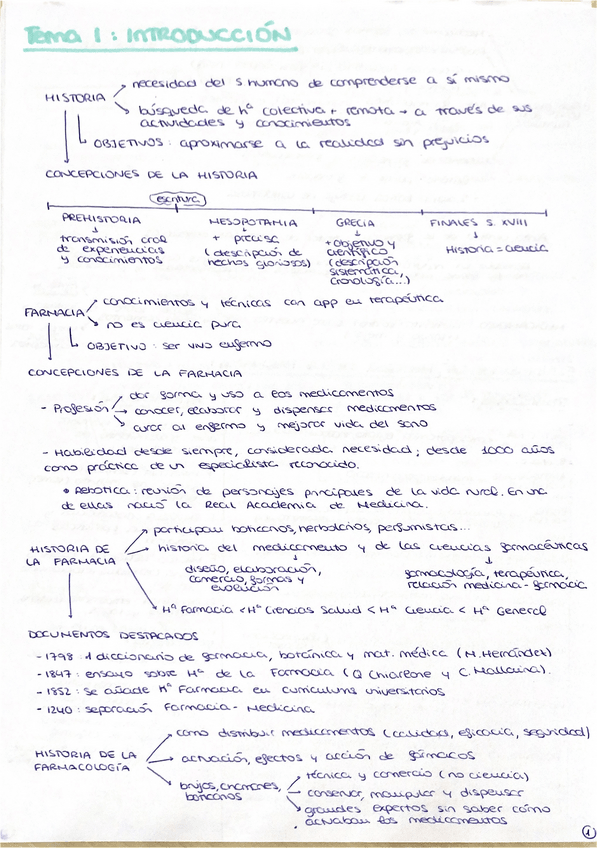 Tema 1: INTRODUCCIÓN
HISTORIA
necesidad del s humano de comprenderse a sí mismo
búsqueda de hª colectiva + remota → a través de sus
actividades y conocimientos
OBJETIVOS: aproximarse a la realidad sin prejuicios
CONCEPCIONES DE LA HISTORIA
escritura
PREHISTORIA
transmisión oral
de experiencias
y conocimientos
MESOPOTAMIA
+ precisa
(descripción de
hechos gloriosos)
GRECIA
+ objetivo y
científico
(descripción
sistemática,
cronología...)
FINALES S. XVIII
Historia = ciencia
FARMACIA
conocimientos y técnicas con app en terapéutica
no es ciencia pura
OBJETIVO: ser vivo enfermo
CONCEPCIONES DE LA FARMACIA
- Profesión
dar forma y uso a los medicamentos
conocer, elaborar y dispensar medicamentos
curar al enfermo y mejorar vida del sano
- Habilidad desde siempre, considerada necesidad; desde 1000 años
como práctica de un especialista reconocido.
• Rebotica: reunión de personajes principales de la vida rural. En una
de ellas nació la Real Academia de Medicina.
HISTORIA DE
LA FARMACIA
participan boticarios, herbolarios, perfumistas...
historia del medicamento y de las ciencias farmacéuticas
diseño, elaboración,
comercio, formas y
evolución
farmacología, terapéutica,
relación medicina-farmacia
Hª Farmacia < Hª Ciencias Salud < Hª Ciencia < Hª General
DOCUMENTOS DESTACADOS
- 1798: 1 diccionario de farmacia, botánica y mat. médica (M. Hernández)
- 1847: ensayo sobre Hª de la Farmacia (Q Chiarlone y C. Mallaina).
- 1852: se añade Hª Farmacia en curriculums universitarios
- 1240: separación Farmacia - Medicina
HISTORIA DE LA
FARMACOLOGÍA
como distribuir medicamentos (calidad, eficacia, seguridad)
actuación, efectos y acción de fármacos
brujos, chamanes,
boticarios
técnica y comercio (no ciencia)
conservar, manipular y dispensar
grandes expertos sin saber cómo
actuaban los medicamentos
1